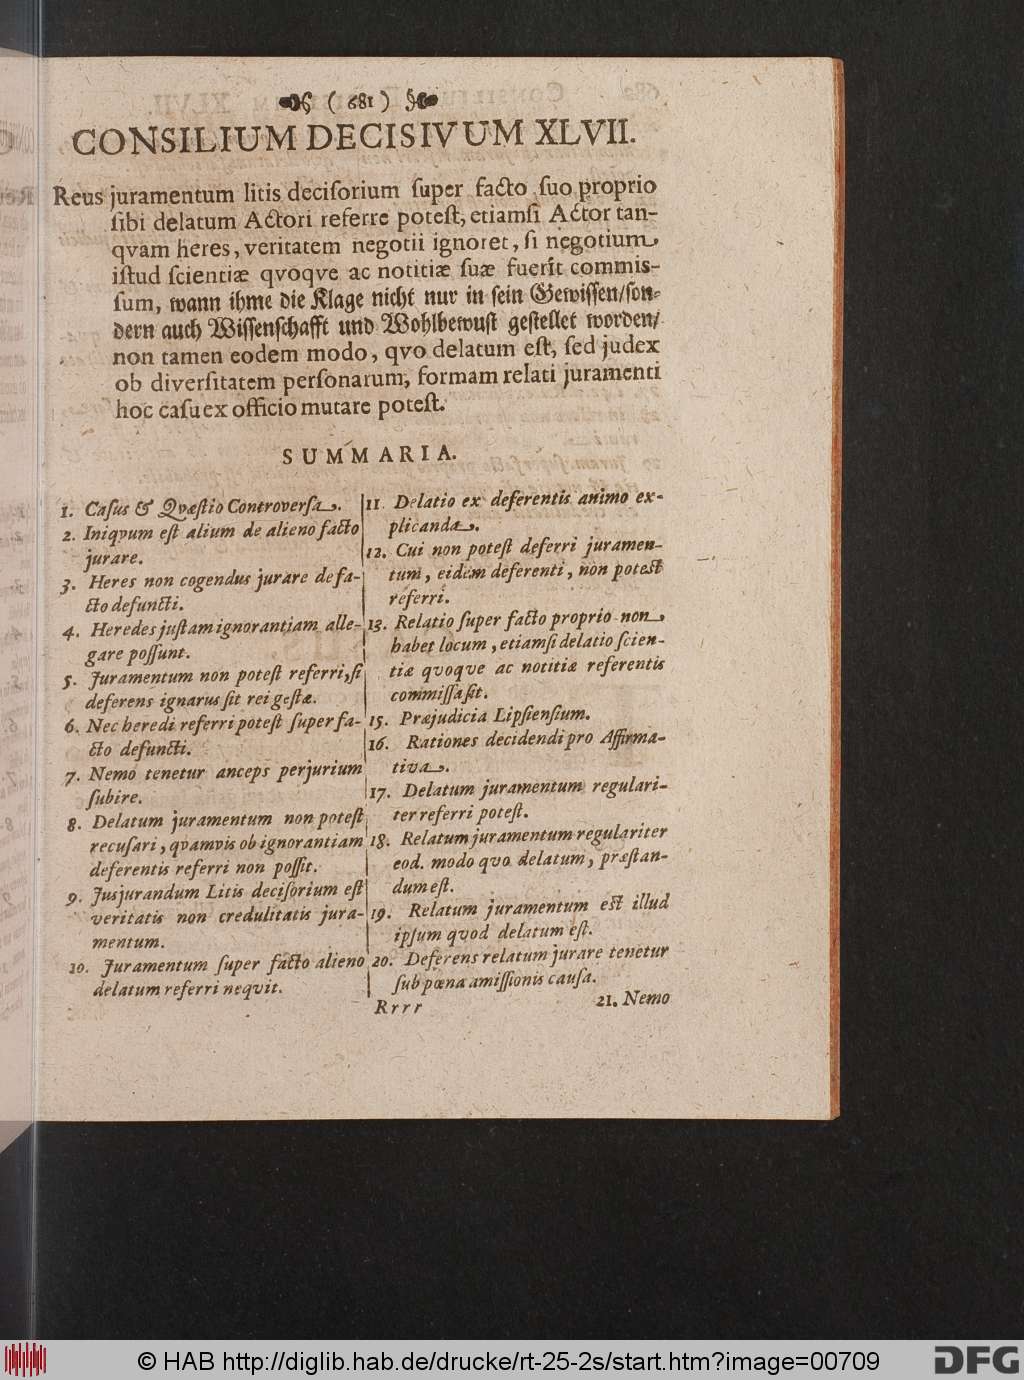 ( 681 )
CONSILIUM DECISIVUM XLVII.
Reus juramentum litis deciſorium ſuper facto ſuo proprio
ſibi delatum Actori referre poteſt, etiamſi Actor tan-
qvam heres, veritatem negotii ignoret, ſi negotium
iſtud ſcientiæ qvoqve ac notitiæ ſuæ fuerit commiſ-
ſum, wann ihme die Klage nicht nur in ſein Gewiſſen/ſon-
dern auch Wiſſenſchafft und Wohlbewuſt geſtellet worden/
non tamen eodem modo, qvo delatum eſt, ſed judex
ob diverſitatem perſonarum, formam relati juramenti
hoc caſu ex officio mutare poteſt.
SUMMARIA.
1. Caſus & Qvæſtio Controverſa.
2. Iniqvum eſt alium de alieno facto
jurare.
3. Heres non cogendus jurare de fa-
cto defuncti.
4. Heredes juſtam ignorantiam alle-
gare poſſunt.
5. Juramentum non poteſt referri, ſi
deferens ignarus ſit rei geſtæ.
6. Nec heredi referri poteſt ſuper fa-
cto defuncti.
7. Nemo tenetur anceps perjurium
ſubire.
8. Delatum juramentum non poteſt
recuſari, qvamvis ob ignorantiam
deferentis referri non poſſit.
9. Jusjurandum Litis deciſorium eſt
veritatis non credulitatis jura-
mentum.
10. Juramentum ſuper facto alieno
delatum referri neqvit.
11. Delatio ex deferentis animo ex-
plicanda.
12. Cui non poteſt deferri juramen-
tum, eidem deferenti, non potest
referri.
13. Relatio ſuper facto proprio non
habet locum, etiamſi delatio ſcien-
tiæ qvoqve ac notitiæ referentis
commiſſa ſit.
15. Præjudicia Lipſienſium.
16. Rationes decidendi pro Affirma-
tiva.
17. Delatum juramentum regulari-
ter referri poteſt.
18. Relatum juramentum regulariter
eod. modo qvo delatum, præſtan-
dum eſt.
19. Relatum juramentum est illud
ipſum qvod delatum eſt.
20. Deferens relatum jurare tenetur
ſub pœna amiſſionis cauſa.
Rrrr
21. Nemo
© HAB http://diglib.hab.de/drucke/rt-25-2s/start.htm?image=00709
DFG